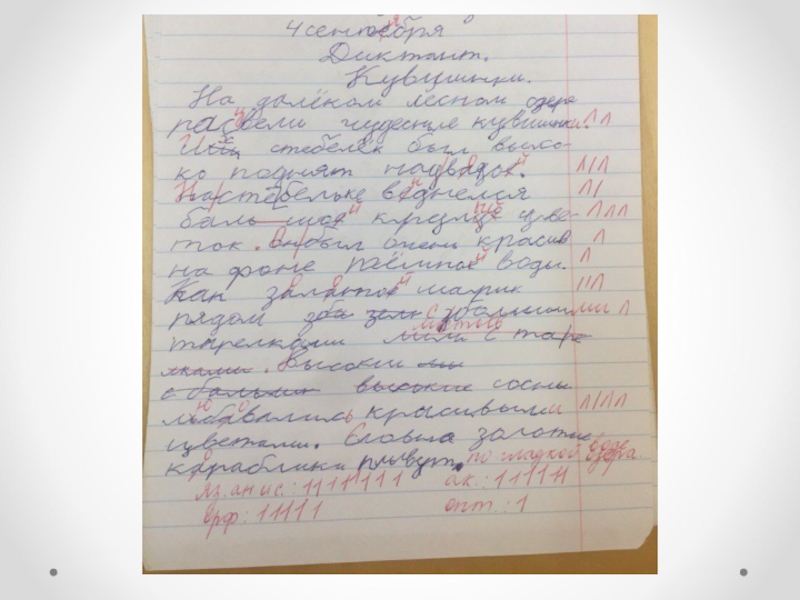 4 сентебря
Диктант.
Кувшинки.
На далёком лесном озере
расвели чудесные кувшинки.
стебелёк был высо-
ко поднят надвадой.
Настебельке веднелся
баль шой крспные цве-
ток. Он был очень красив
на фоне тёмной воды.
Как залатой шарик
рядом зба зелн збальшими
тарелками листью с таре
лками. Высокии
с бальши высокие сосны
любавались красивыми
цветами. Словна золотые
караблики плывут. по гладкой воде озера
яз. ан. ис.: 11111111 ак.: 111111
орф.: 11111 опт.: 1